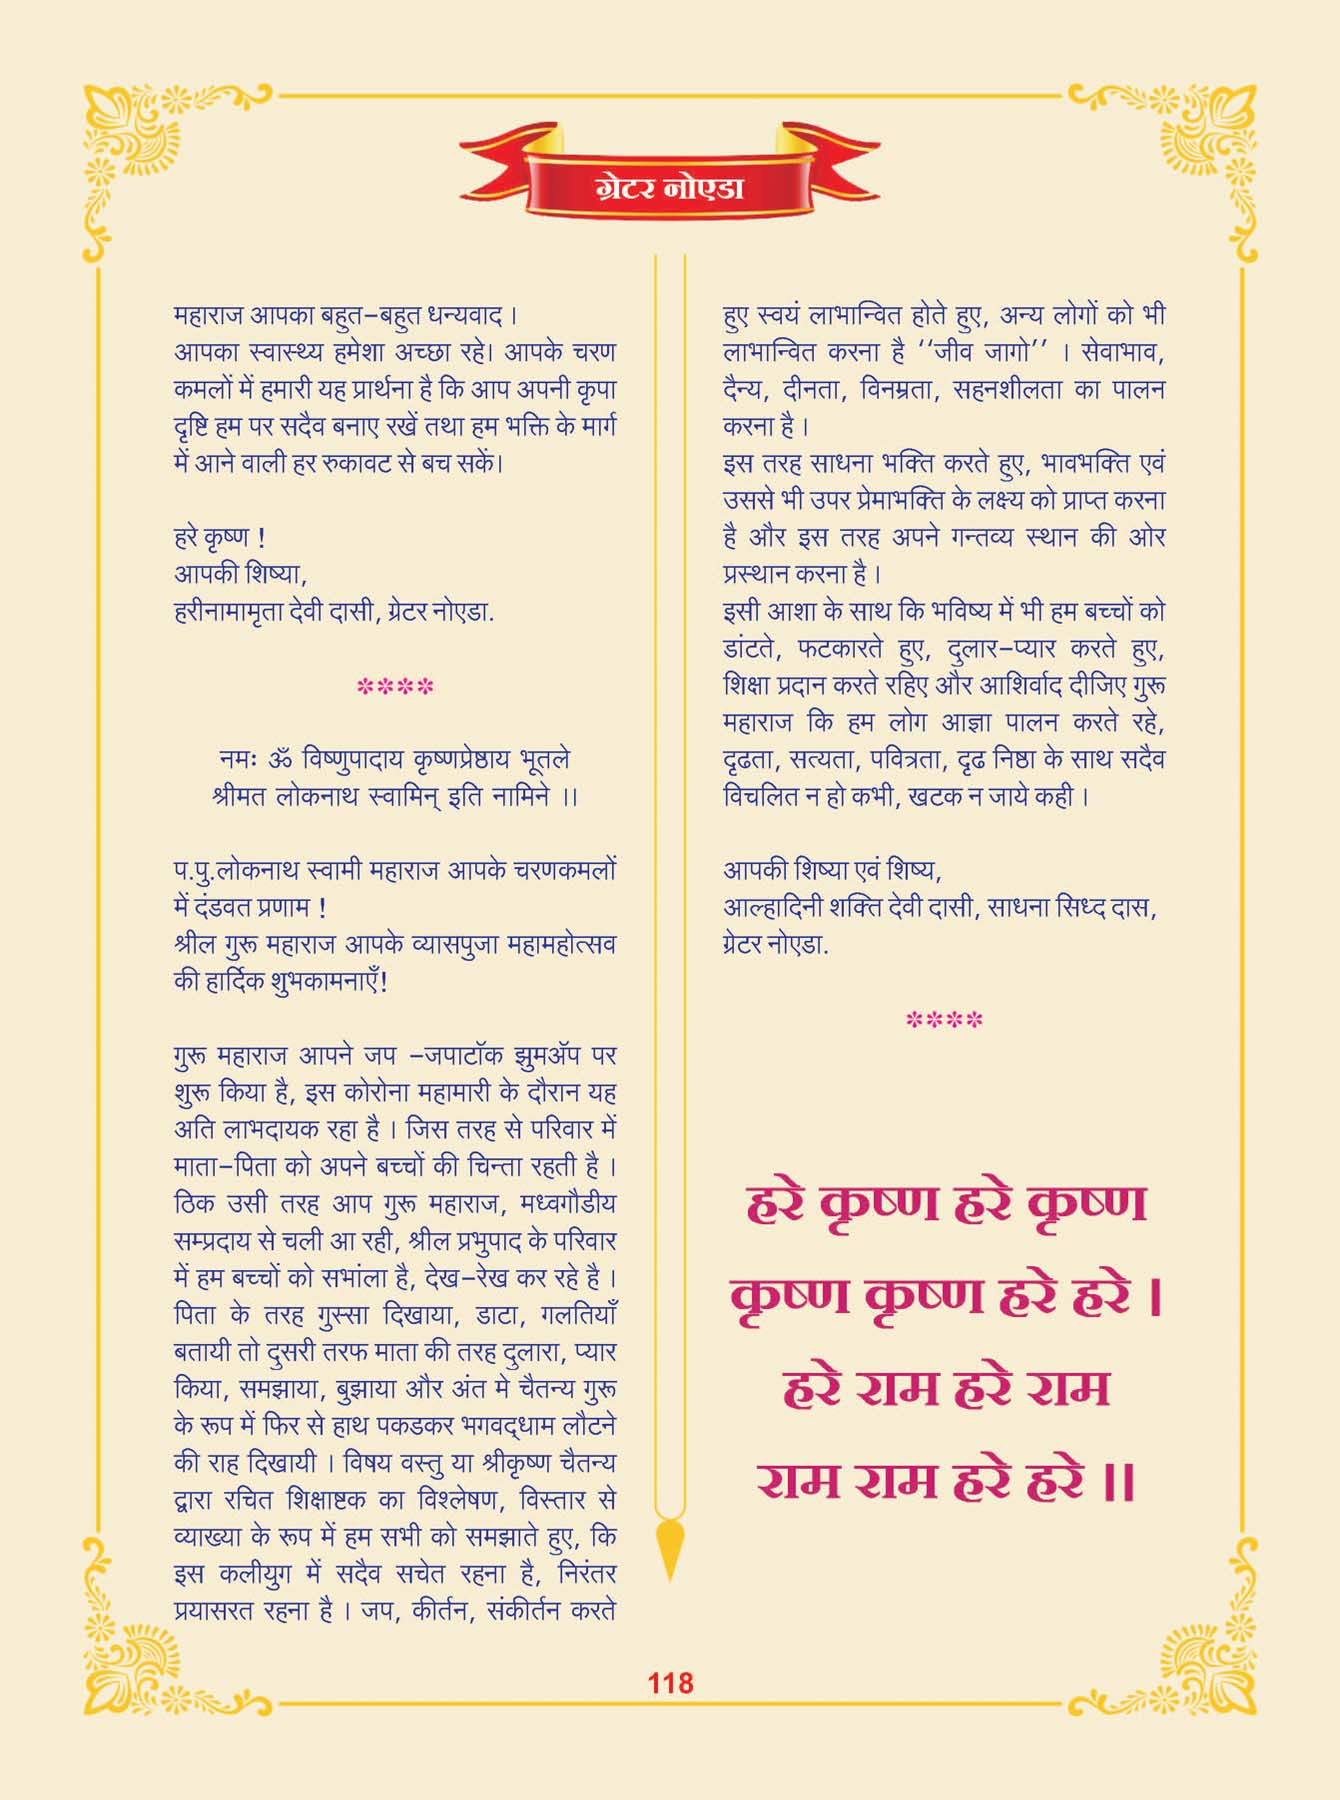 ग्रेटर नोएडा
महाराज आपका बहुत-बहुत धन्यवाद ।
आपका स्वास्थ्य हमेशा अच्छा रहे। आपके चरण
कमलों में हमारी यह प्रार्थना है कि आप अपनी कृपा
दृष्टि हम पर सदैव बनाए रखें तथा हम भक्ति के मार्ग
में आने वाली हर रुकावट से बच सकें।
हरे कृष्ण !
आपकी शिष्या,
हरीनामामृता देवी दासी, ग्रेटर नोएडा.
****
नमः ॐ विष्णुपादाय कृष्णप्रेष्ठाय भूतले
श्रीमत लोकनाथ स्वामिन् इति नामिने ।।
प.पु.लोकनाथ स्वामी महाराज आपके चरणकमलों
में दंडवत प्रणाम !
श्रील गुरू महाराज आपके व्यासपुजा महामहोत्सव
की हार्दिक शुभकामनाएँ!
गुरू महाराज आपने जप -जपाटॉक झुमॲप पर
शुरू किया है, इस कोरोना महामारी के दौरान यह
अति लाभदायक रहा है । जिस तरह से परिवार में
माता-पिता को अपने बच्चों की चिन्ता रहती है ।
ठिक उसी तरह आप गुरू महाराज, मध्वगौडीय
सम्प्रदाय से चली आ रही, श्रील प्रभुपाद के परिवार
में हम बच्चों को सभांला है, देख-रेख कर रहे है ।
पिता के तरह गुस्सा दिखाया, डाटा, गलतियाँ
बतायी तो दुसरी तरफ माता की तरह दुलारा, प्यार
किया, समझाया, बुझाया और अंत मे चैतन्य गुरू
के रूप में फिर से हाथ पकडकर भगवद्धाम लौटने
की राह दिखायी । विषय वस्तु या श्रीकृष्ण चैतन्य
द्वारा रचित शिक्षाष्टक का विश्लेषण, विस्तार से
व्याख्या के रूप में हम सभी को समझाते हुए, कि
इस कलीयुग में सदैव सचेत रहना है, निरंतर
प्रयासरत रहना है । जप, कीर्तन, संकीर्तन करते
हुए स्वयं लाभान्वित होते हुए, अन्य लोगों को भी
लाभान्वित करना है ‘‘जीव जागो’’ । सेवाभाव,
दैन्य, दीनता, विनम्रता, सहनशीलता का पालन
करना है ।
इस तरह साधना भक्ति करते हुए, भावभक्ति एवं
उससे भी उपर प्रेमाभक्ति के लक्ष्य को प्राप्त करना
है और इस तरह अपने गन्तव्य स्थान की ओर
प्रस्थान करना है ।
इसी आशा के साथ कि भविष्य में भी हम बच्चों को
डांटते, फटकारते हुए, दुलार-प्यार करते हुए,
शिक्षा प्रदान करते रहिए और आशिर्वाद दीजिए गुरू
महाराज कि हम लोग आज्ञा पालन करते रहे,
दृढता, सत्यता, पवित्रता, दृढ निष्ठा के साथ सदैव
विचलित न हो कभी, खटक न जाये कही ।
आपकी शिष्या एवं शिष्य,
आल्हादिनी शक्ति देवी दासी, साधना सिध्द दास,
ग्रेटर नोएडा.
****
हरे कृष्ण हरे कृष्ण
कृष्ण कृष्ण हरे हरे ।
हरे राम हरे राम
राम राम हरे हरे ।।
118